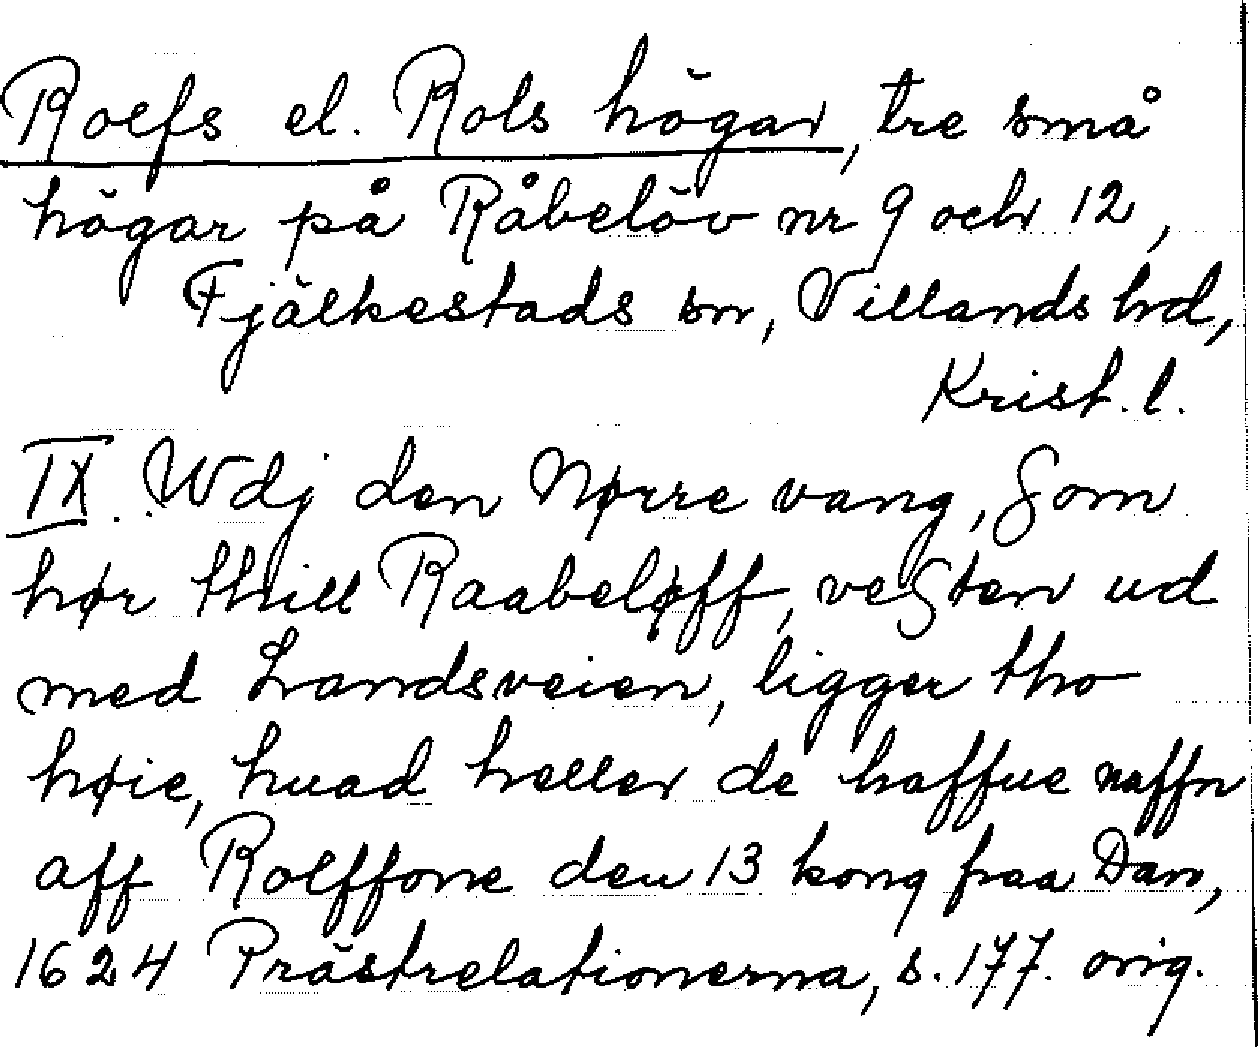 Roefs el. Rols högar, tre små
högar på Råbelöv nr 9 och 12,
Fjälkestads sn, Villands hd,
Krist. l.
IX. Wdj den Nørre vang, Som
hør thill Raabeløff, veSten ud
med Landsveien, ligger tho
høie, huad heller de haffue naffn
aff Rolffone den 13 kong fraa Dan,
1624 Prästrelationerna, s. 177. orig.